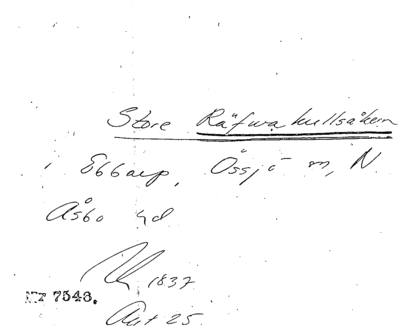 Store Räfwakullsåkern
i Ebbarp, Össjö sn, N.
Åsbo hd
LM 1837
NT 7543.
Akt 25.